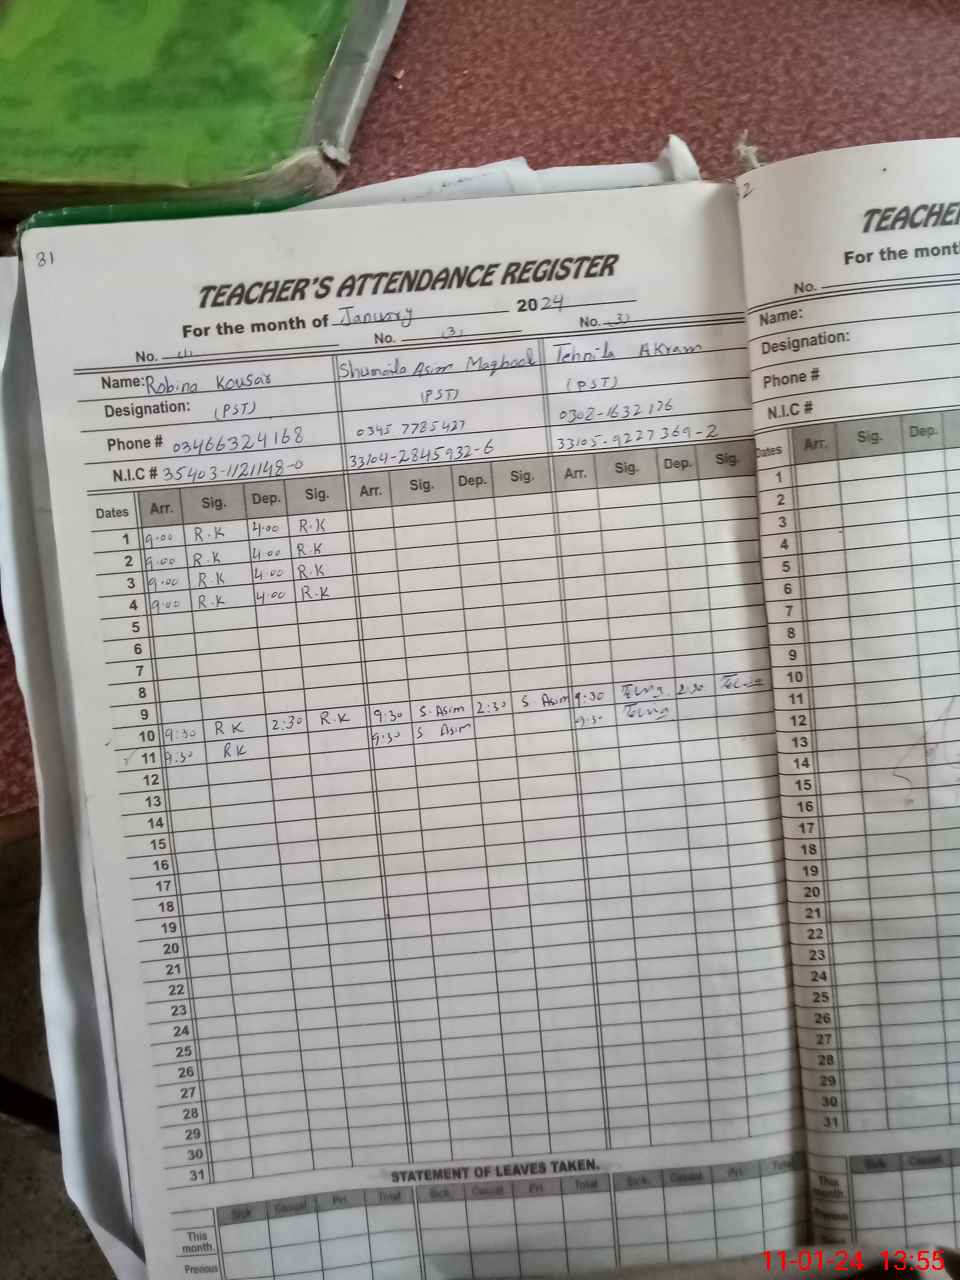 31
TEACHER'S ATTENDANCE REGISTER
For the month of January 2024
No. (1) No. (3) No. (3)
Name: Robina Kousar Shumaila Asim Maqbool Tehnila Akram
Designation: (PST) (PST) (PST)
Phone # 03466324168 0345 7785427 0308-1632126
N.I.C # 35403-1121148-0 33104-2845932-6 33105-9227369-2
Dates Arr. Sig. Dep. Sig. Arr. Sig. Dep. Sig. Arr. Sig. Dep. Sig.
1 9:00 R.K 4:00 R.K
2 9:00 R.K 4:00 R.K
3 9:00 R.K 4:00 R.K
4 9:00 R.K 4:00 R.K
5
6
7
8
9
10 9:30 RK 2:30 R.K 9:30 S.Asim 2:30 S.Asim 9:30 2:30
11 9:30 RK 9:30 S Asim 9:30
12
13
14
15
16
17
18
19
20
21
22
23
24
25
26
27
28
29
30
31
STATEMENT OF LEAVES TAKEN.
Sick Casual Pri. Total Sick Casual Pri. Total Sick Casual Pri. Total
This month.
Previous
2
TEACHE
For the mont
No.
Name:
Designation:
Phone #
N.I.C #
Dates Arr. Sig. Dep.
1
2
3
4
5
6
7
8
9
10
11
12
13
14
15
16
17
18
19
20
21
22
23
24
25
26
27
28
29
30
31
Sick Casual
This month.
Previous
11-01-24 13:55